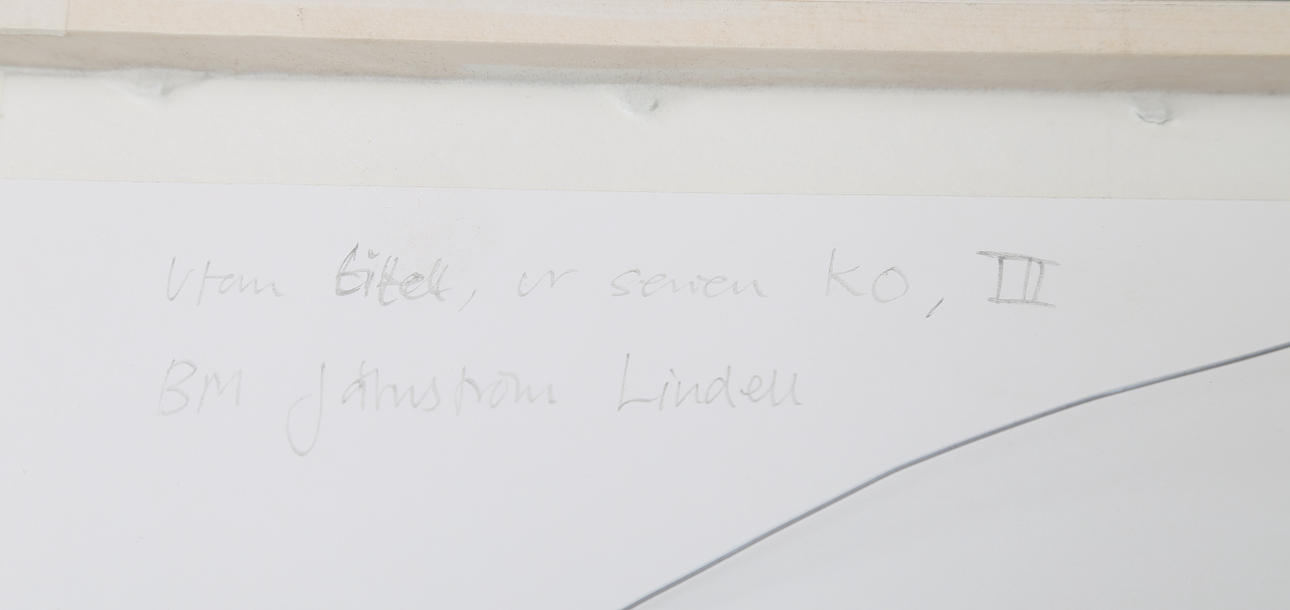 Utan titel, ur serien KO, III
BM Järnström Lindell